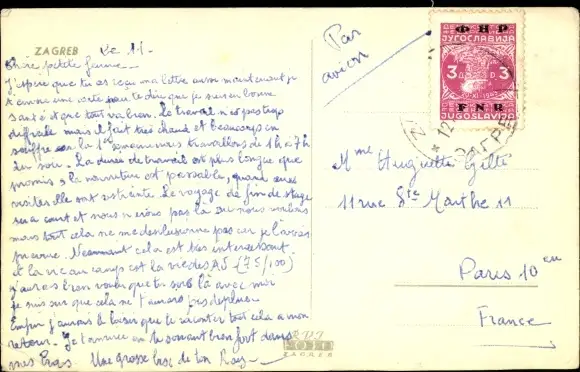 ZAGREB
Le 11.
Chère petite femme -
J'espère que tu as reçu ma lettre aussi maintenant je
t'envoie une carte pour te dire que je suis en bonne
santé et que tout va bien. Le travail n'est pas trop
difficile mais il fait très chaud et beaucoup en
souffre. la 1ère semaine nous travaillons de 1h à 7h
du soir. La durée de travail est plus longue que
promis, la nourriture est passable, quand aux
visites elle ont restreinte. Le voyage de fin de stage
sera court et nous n'irons pas là où nous voulions
mais tout cela ne me
prévenue. Néanmoins cela est très intéressant
et la vie au camps est la vie des AJ (75/100)
J'aurais bien voulu que tu sois là avec moi
je suis sur que cela ne t'aurais pas déplu.
Enfin j'aurais le loisir que te raconter tout cela à mon
retour. Je t'envoie en te serrant bien fort dans
mes bras. Une grosse bise de ton Ray -
Par
avion
ФНР
ЈУГОСЛАВИЈА
3 3
FNR
JUGOSLAVIJA
Mme Huguette Gilte
11 rue Ste Marthe 11
Paris 10 em
France
FOTO
ZAGREB